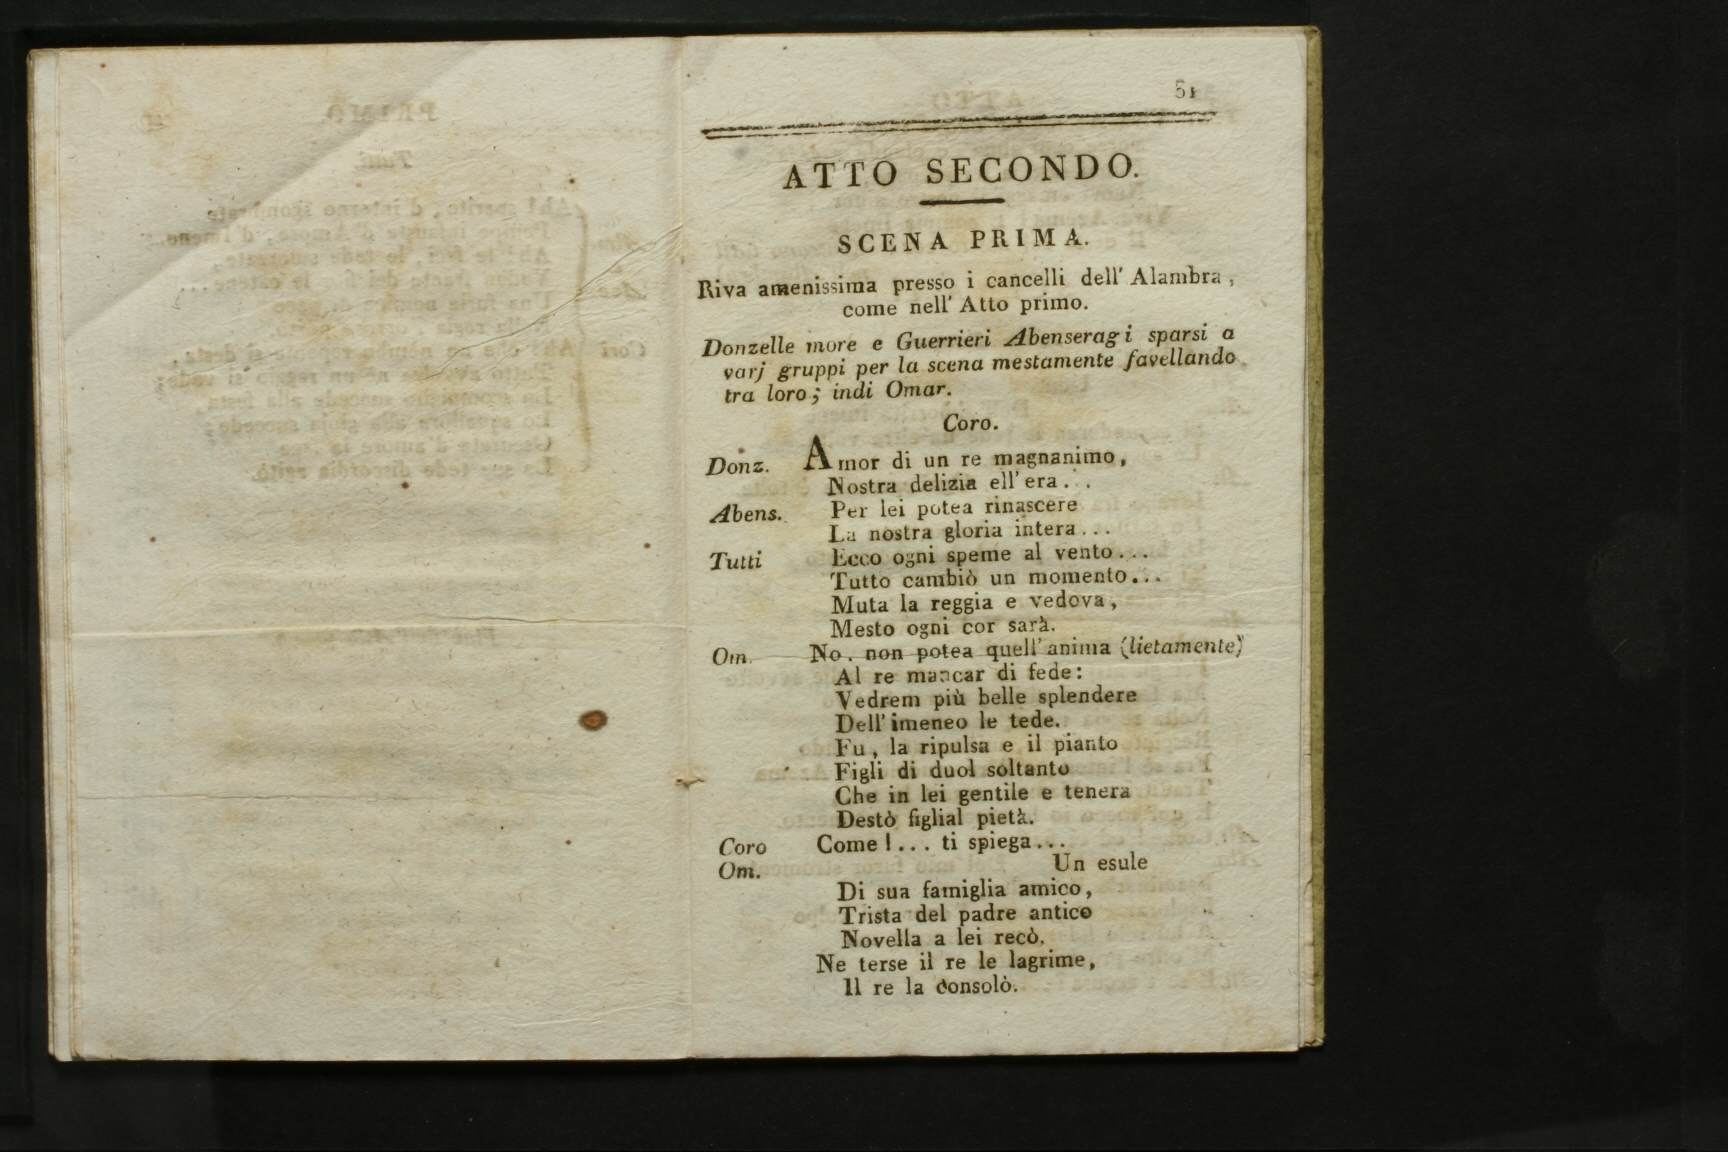 51
ATTO SECONDO.
SCENA PRIMA.
Riva amenissima presso i cancelli dell' Alambra,
come nell' Atto primo.
Donzelle more e Guerrieri Abenseragi sparsi a
varj gruppi per la scena mestamente favellando
tra loro; indi Omar.
Coro.
Donz. Amor di un re magnanimo,
Nostra delizia ell' era...
Abens. Per lei potea rinascere
La nostra gloria intera...
Tutti Ecco ogni speme al vento...
Tutto cambiò un momento...
Muta la reggia e vedova,
Mesto ogni cor sarà.
Om. No, non potea quell' anima (lietamente)
Al re mancar di fede:
Vedrem più belle splendere
Dell' imeneo le tede.
Fu, la ripulsa e il pianto
Figli di duol soltanto
Che in lei gentile e tenera
Destò figlial pietà.
Coro Come!... ti spiega...
Om. Un esule
Di sua famiglia amico,
Trista del padre antico
Novella a lei recò.
Ne terse il re le lagrime,
Il re la consolò.